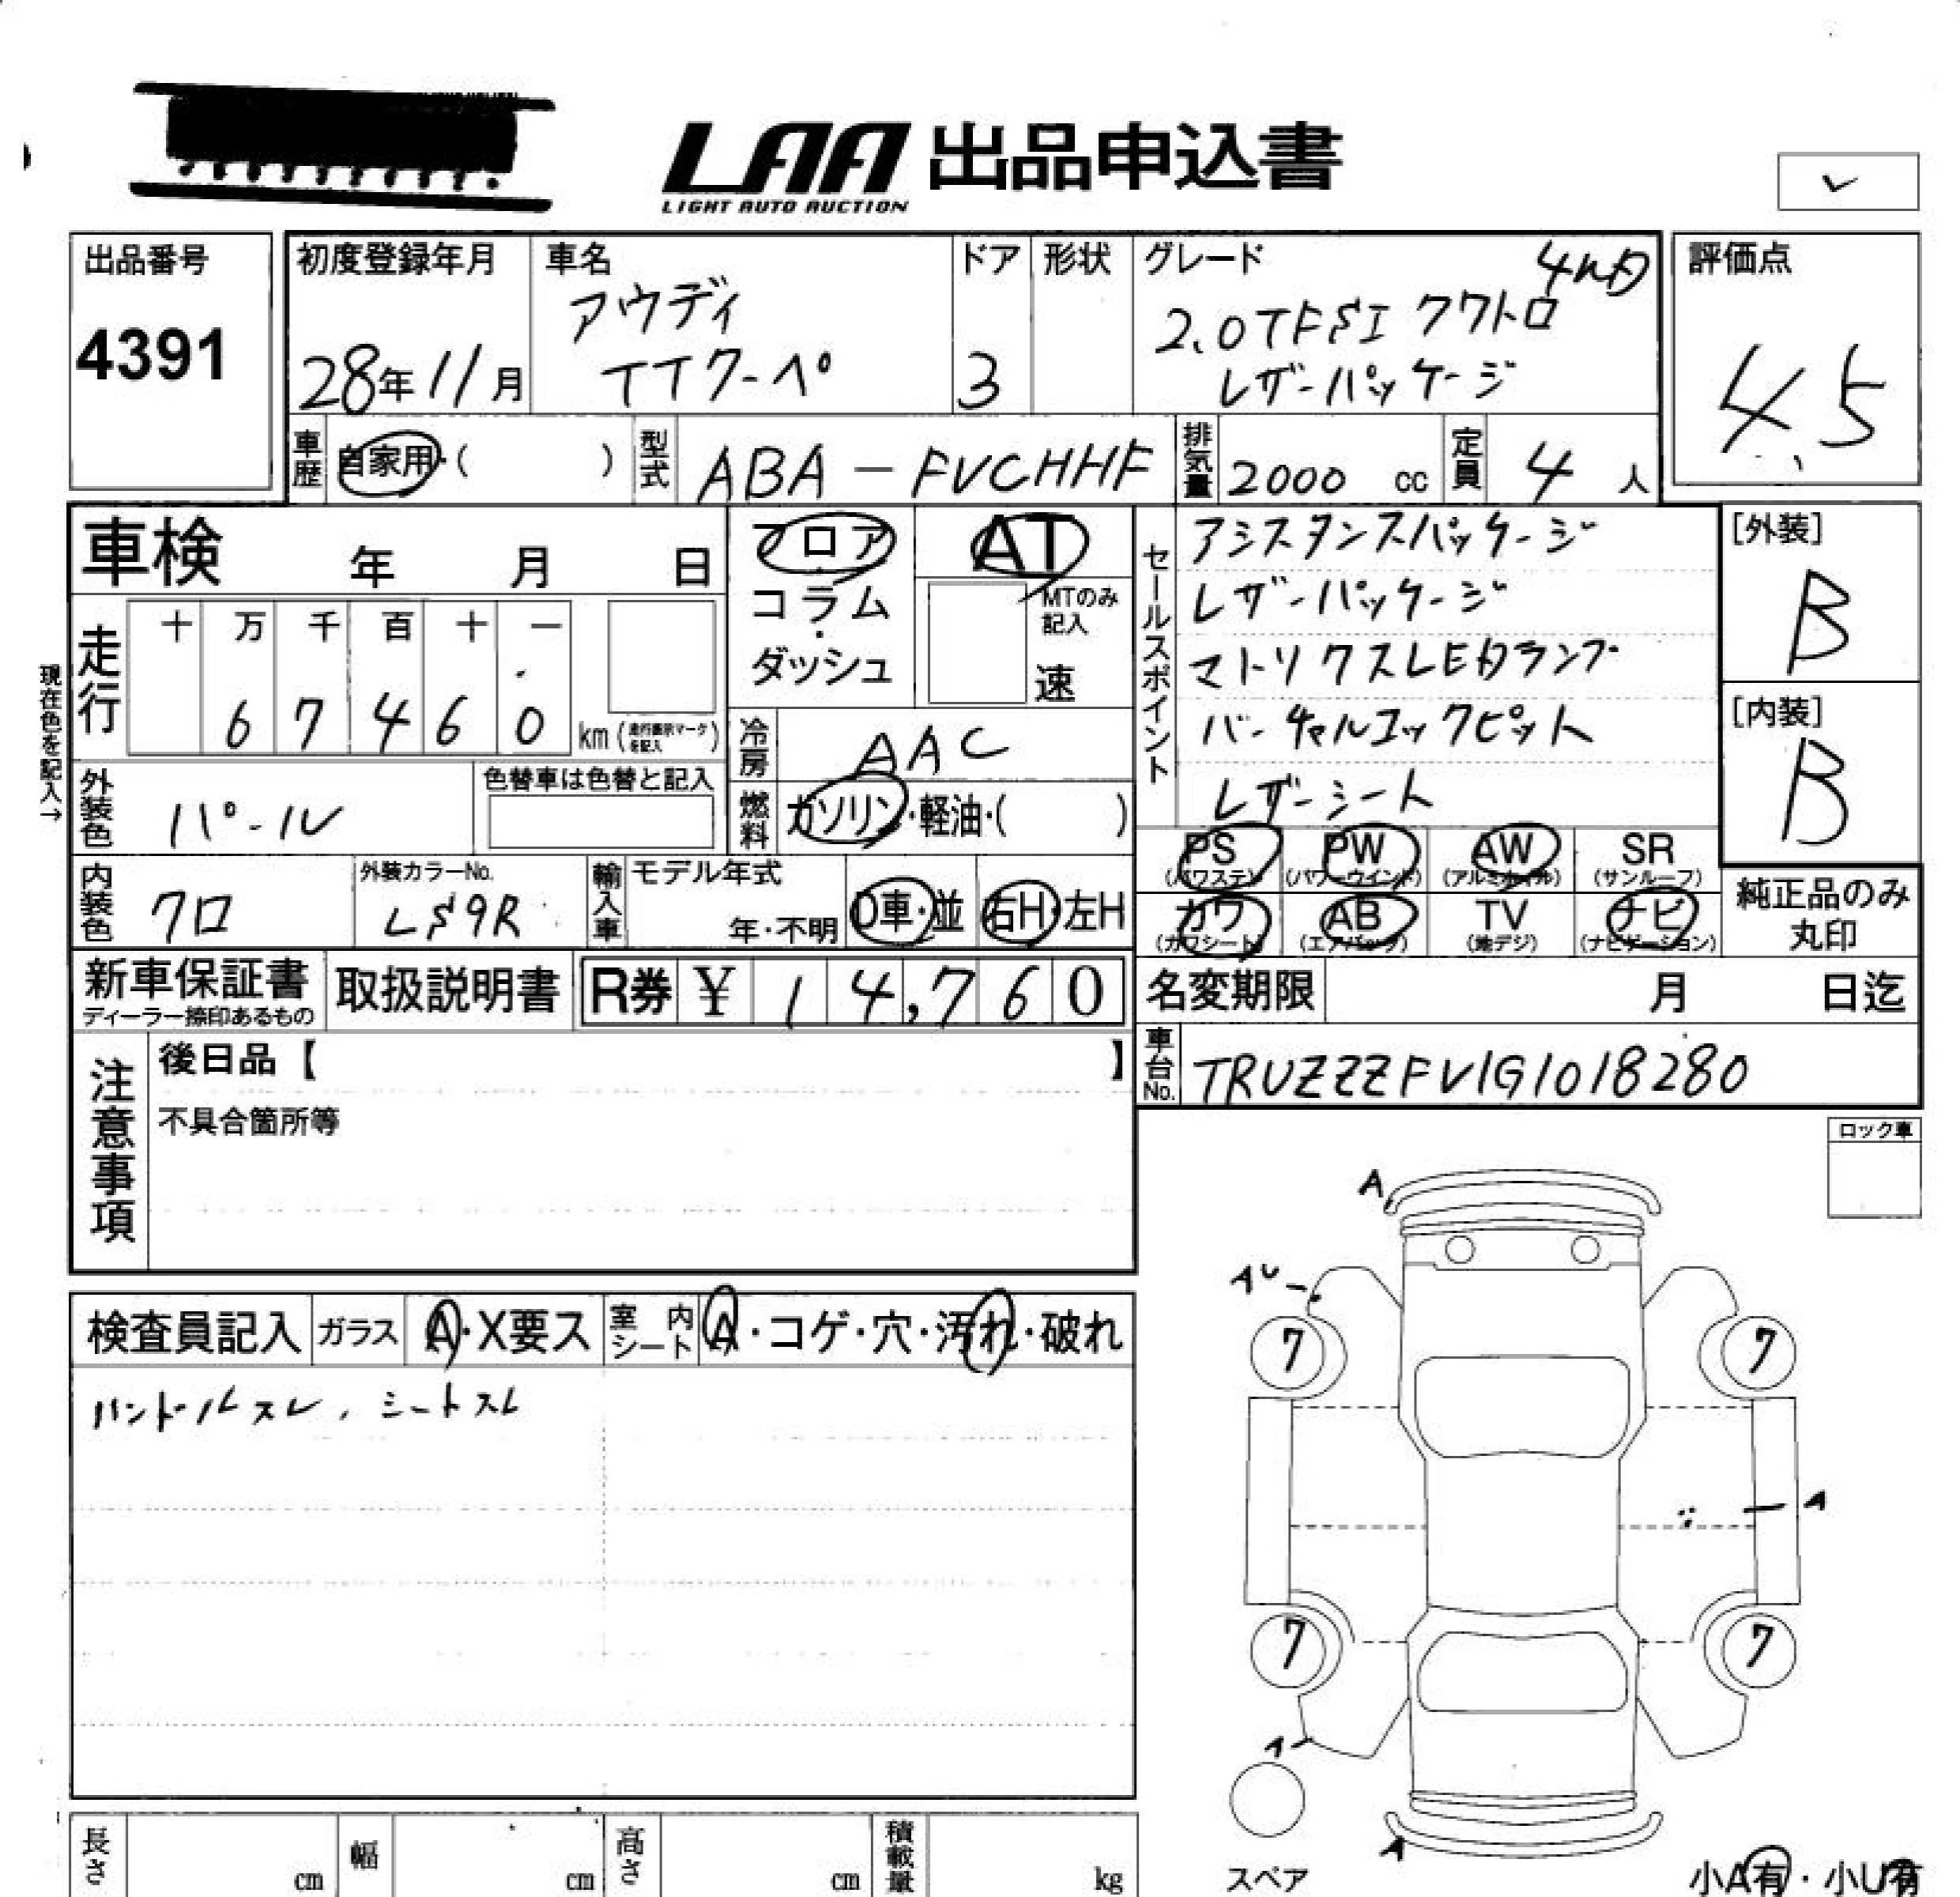 LAA 出品申込書
LIGHT AUTO AUCTION
出品番号
4391
初度登録年月
28年11月
車名
アウディ
TTクーペ
ドア
3
形状
グレード
4WD
2.0TFSI クワトロ
レザーパッケージ
評価点
4.5
車歴
自家用・( )
型式
ABA-FVCHHF
排気量
2000 cc
定員
4 人
車検 年 月 日
フロア
コラム
・
ダッシュ
AT
MTのみ
記入
速
セールスポイント
アシスタンスパッケージ
レザーパッケージ
マトリクスLEDランプ
バーチャルコックピット
レザーシート
[外装]
B
[内装]
B
現在色を記入→
走行
十 万 千 百 十 一
6 7 4 6 0
km (走行距離マークを記入)
冷房
AAC
燃料
ガソリン・軽油・( )
外装色
パール
色替車は色替と記入
内装色
クロ
外装カラーNo.
LS9R
輸入車
モデル年式
年・不明
D車・並
右H・左H
PS
(パワステ)
PW
(パワーウインド)
AW
(アルミホイル)
SR
(サンルーフ)
カワ
(カワシート)
AB
(エアバック)
TV
(地デジ)
ナビ
(ナビゲーション)
純正品のみ
丸印
新車保証書
ディーラー捺印あるもの
取扱説明書
R券 ¥ 14,760
名変期限 月 日迄
車台No.
TRUZZZFV1G1018280
注意事項
後日品【 】
不具合箇所等
ロック車
検査員記入
ガラス
A・X要ス
室内シート
A・コゲ・穴・汚れ・破れ
ハンドルスレ、シートスレ
A
AU
7
7
A
7
7
A
A
スペア
小A有・小U有
長さ cm
幅 cm
高さ cm
積載量 kg